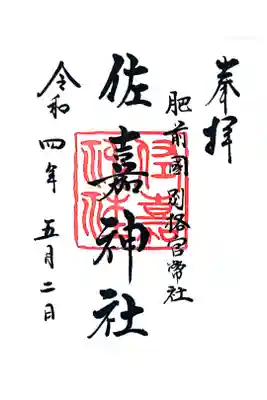 奉拝
肥前國 別格官幣社
佐嘉神社
令和四年 五月二日